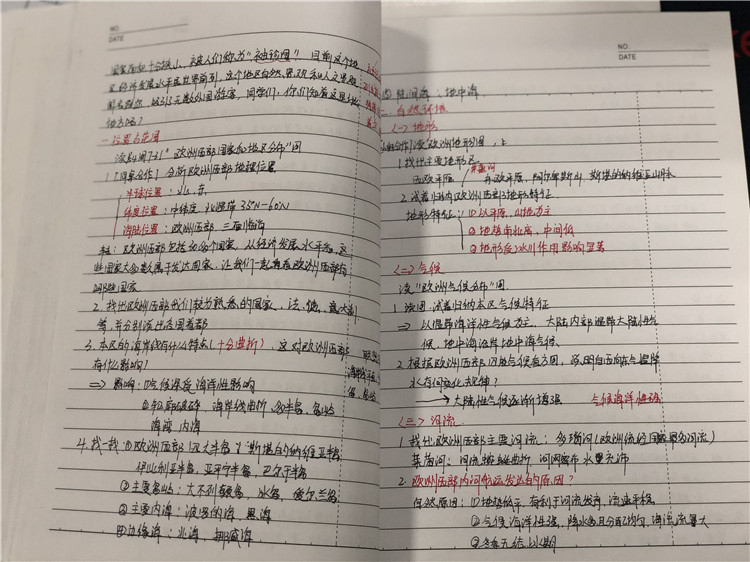 NO
DATE
国家面积十分狭小，被人们称为"袖珍国"。目前这个地
区经济发展水平居世界前列，这个地区自然景观和人文景观
都有
位置与范围
读 "欧洲西部国家和地区分布"图
1.[小组合作] 分析欧洲西部地理位置
半球位置：北、东
纬度位置：中纬度，北温带 35°N—60°N
海陆位置：欧洲西部 三面临海
欧洲西部包括40多个国家，从经济发展水平看，这
些国家大多数属于发达国家，让我们一起看看欧洲西部有
哪些国家
2. 找出欧洲西部我们较为熟悉的国家，法、德、意大利
等，并分别读出该国首都
3. 本区的海岸线有什么特点(十分曲折)，这对欧洲西部
有什么影响？
⇒ 影响：①气候深受海洋性影响
②轮廓破碎，海岸线曲折，多半岛、岛屿
海湾、内海
4. 找一找 ①欧洲西部四大半岛：斯堪的纳维亚半岛
伊比利亚半岛，亚平宁半岛，巴尔干半岛
②主要岛屿：大不列颠岛，冰岛，爱尔兰岛
③主要内海：波罗的海，黑海
④边缘海：北海，挪威海
NO
DATE
⑤陆间海：地中海
二、自然环境
<一> 地形
读欧洲地形图，
1. 找出主要地形区
西欧平原 中欧平原，阿尔卑斯山，斯堪的纳维亚山脉
2. 试着归纳欧洲西部地形特征
地形特征：①以平原，山地为主
②地势南北高，中间低
③地形受冰川作用影响显著
<二> 气候
读"欧洲气候分布"图
1. 读图，试着归纳本区气候特征
⇒ 以温带海洋性气候为主，大陆内部温带大陆性气
候，地中海沿岸地中海气候
2. 根据欧洲西部 气候 图，说明自西向东气温降
水有何变化规律？
→ 大陆性气候逐渐增强 气候海洋性强
<三> 河流
1. 找出欧洲西部主要河流：多瑙河(欧洲流经国家最多河流)
莱茵河：河流 曲折 河网密布 水量充沛
2. 欧洲西部内河航运发达的原因？
自然原因：①地势低平，有利于河流发育，流速平稳
②气候海洋性强，降水多且分配均匀，河流流量大
③冬季无结冰期